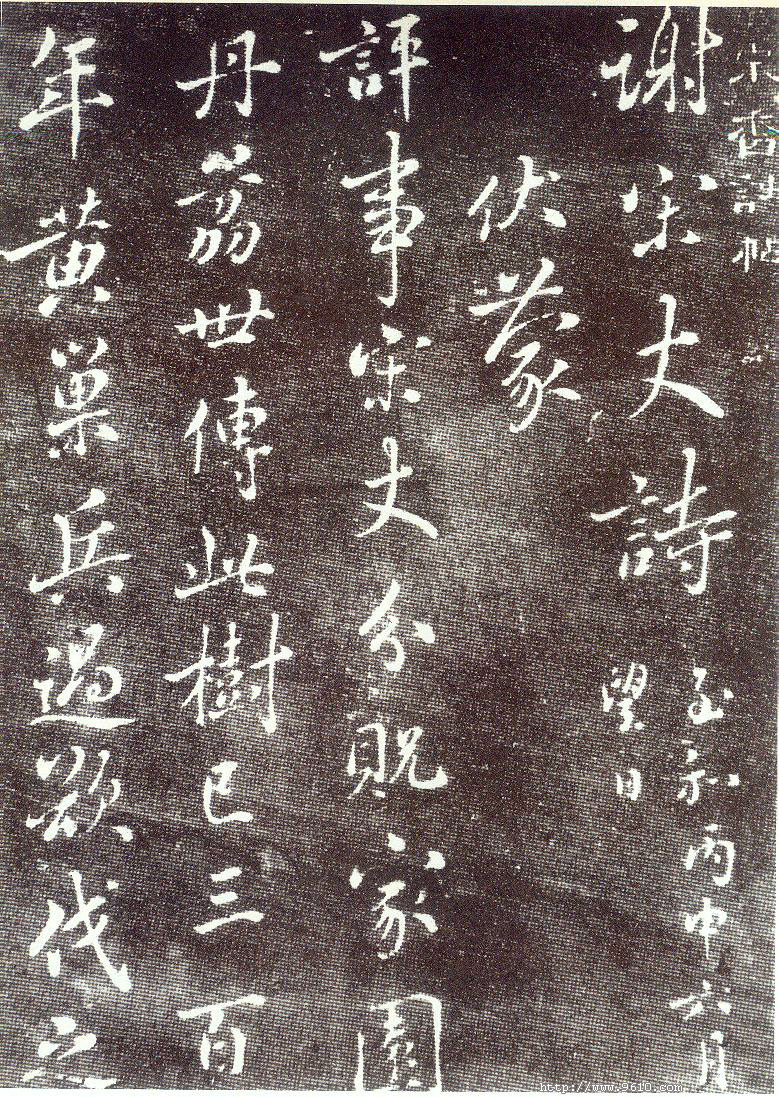 宋詩帖
謝宋丈詩
至和丙申六月
望日
伏蒙
評事宋丈分貺家園
丹荔世傳此樹已三百
年黄巢兵過欲伐之
http://www.9610.com